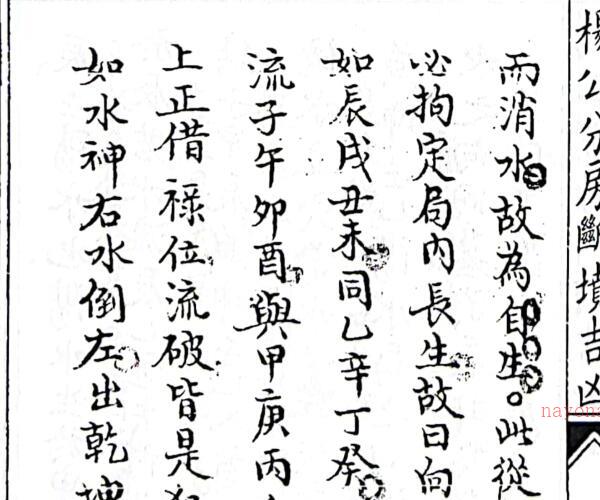 楊公分房斷墳吉凶
而消水故為自生。此從
必拘定局內長生故曰向
如辰戌丑未同乙辛丁癸
流子午卯酉與甲庚丙
上正借祿位流破皆是
如水神右水倒左出乾
nayona